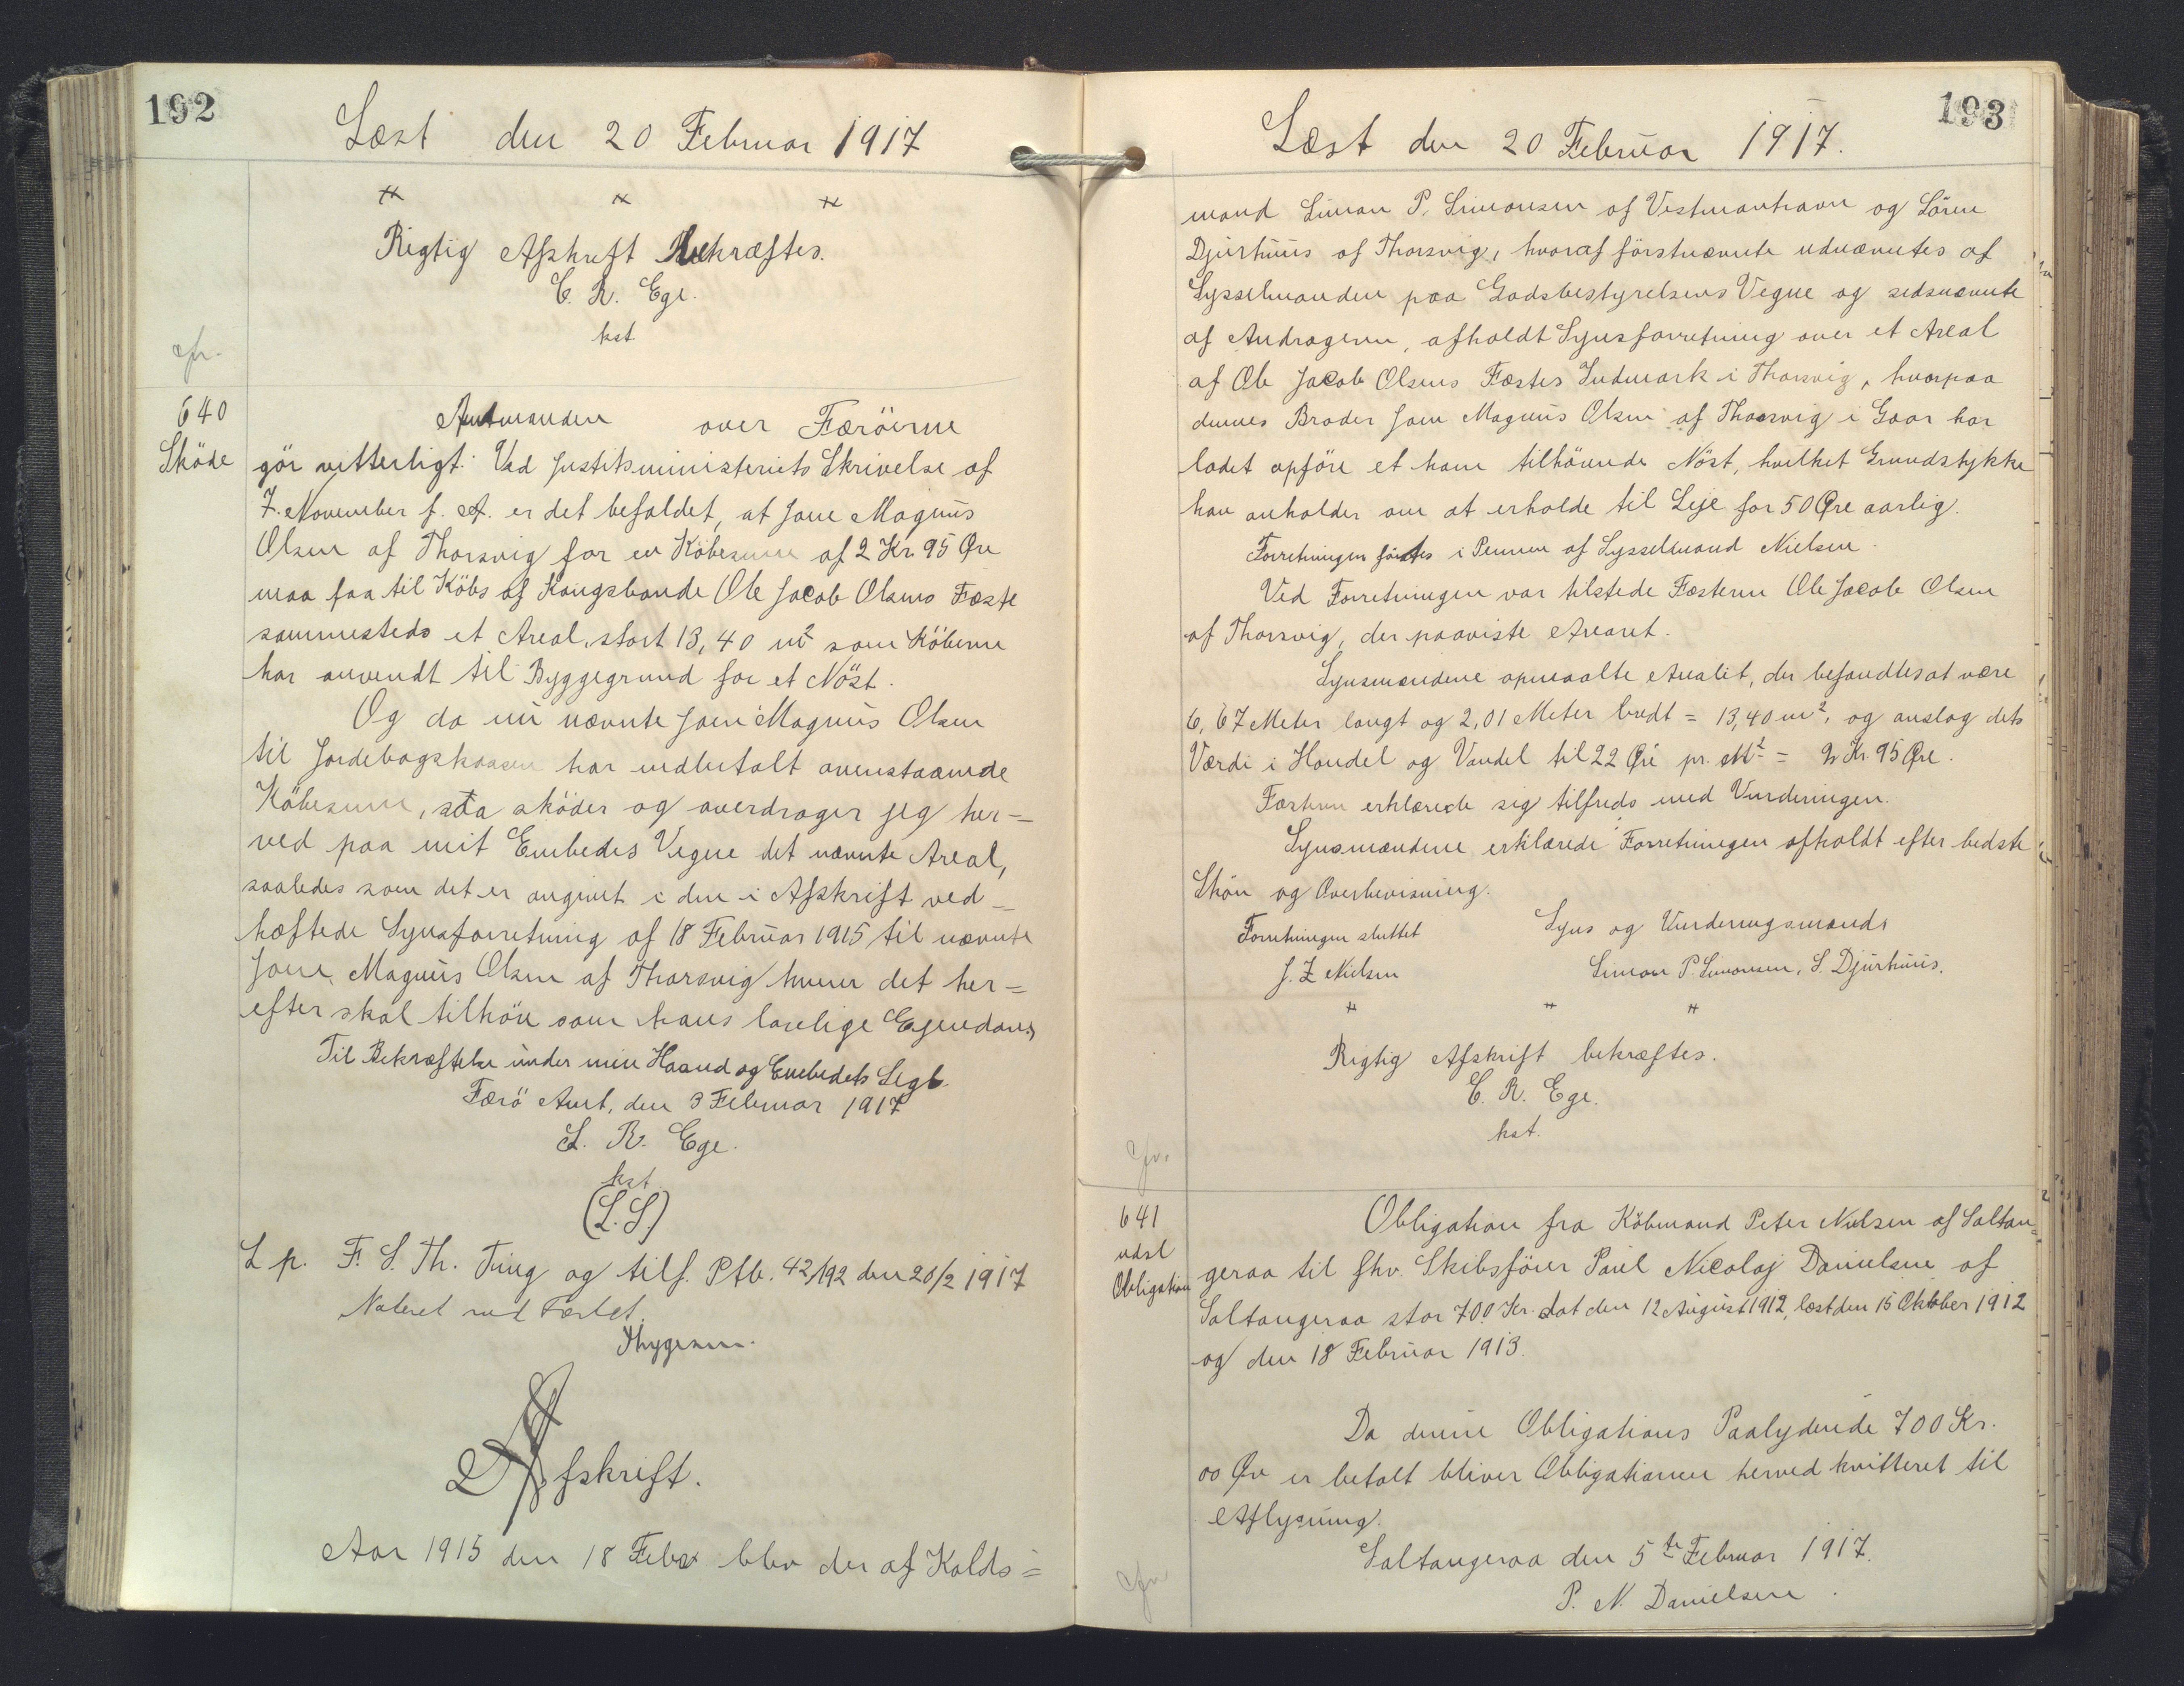 192
Læst den 20 Februar 1917
"   "   "
Rigtig Afskrift Bekræftes.
C. R. Ege.
kst
cfr.
640
Sköde
Amtmanden over Færöerne
gör vitterligt: Ved Justitsministeriets Skrivelse af
7. November f. A. er det befaldet, at Joen Magnus
Olsen af Thorsvig for en Köbesum af 2 Kr. 95 Øre
maa faa til Köbs af Kongsbonde Ole Jacob Olsens Fæste
sammesteds et Areal, stort 13,40 m² som Köberen
har anvendt til Byggegrund for et Nöst.
Og da nu nævnte Joen Magnus Olsen
til Jordebogskassen har indbetalt ovenstaaende
Köbesum, saa sköder og overdrager jeg her-
ved paa mit Embedes Vegne det nævnte Areal,
saaledes som det er angivet i den i Afskrift ved-
hæftede Synsforretning af 18 Februar 1915 til nævnte
Joen Magnus Olsen af Thorsvig hvem det her=
efter skal tilhöre som hans lovlige Ejendom.
Til Bekræftelse under min Haand og Embedets Segl.
Færö Amt, den 3 Februar 1917
C. R. Ege.
kst.
(L.S.)
L p. F. S. Th. Ting og tilf. Ptb. 42/192 den 20/2 1917
Noteret ved Fæstet.
Thygesen.
Afskrift.
Aar 1915 den 18 Febr blev der af Kalds=
193
Læst den 20 Februar 1917.
mand Simon P. Simonsen af Vestmanhavn og Sören
Djurhuus af Thorsvig, hvoraf förstnævnte udnævntes af
Sysselmanden paa Godsbestyrelsens Vegne og sidsnævnte
af Andrageren, afholdt Synsforretning over et Areal
af Ole Jacob Olsens Fæstes Indmark i Thorsvig, hvorpaa
dennes Broder Joen Magnus Olsen af Thorsvig i Gaar har
ladet opföre et ham tilhörende Nöst, hvilket Grundstykke
han anholder om at erholde til Leje for 50 Øre aarlig.
Forretningen förtes i Pennen af Sysselmand Nielsen.
Ved Forretningen var tilstede Fæsteren Ole Jacob Olsen
af Thorsvig, der paaviste Arearet.
Synsmændene opmaalte Arealet, der befandtes at være
6,67 Meter langt og 2,01 Meter bredt = 13,40 m², og anslog dets
Værdi i Handel og Vandel til 22 Øre pr. M² = 2 Kr. 95 Øre.
Fæsteren erklærede sig tilfreds med Vurderingen.
Synsmændene erklærede Forretningen afholdt efter bedste
Skön og Overbevisning.
Forretningen sluttet
Syns og Vurderingsmænd:
J. Z Nielsen
Simon P. Simonsen, S. Djurhuus.
"   "   "
Rigtig Afskrift bekræftes.
C. R. Ege.
kst.
cfr.
641
udsl
Obligation
Obligation fra Köbmand Peter Nielsen af Saltan=
geraa til fhv. Skibsförer Poul Nicolaj Danielsen af
Saltangeraa stor 700 Kr. dat den 12 August 1912, læst den 15 Oktober 1912
og den 18 Februar 1913.
Da denne Obligations Paalydende 700 Kr.
00 Øre er betalt bliver Obligationen herved kvitteret til
Aflysning.
Saltangeraa den 5te Februar 1917.
P. N. Danielsen.
cfr